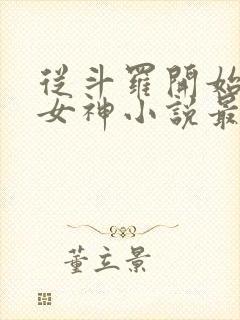 從斗羅開始
女神小說最
董立景